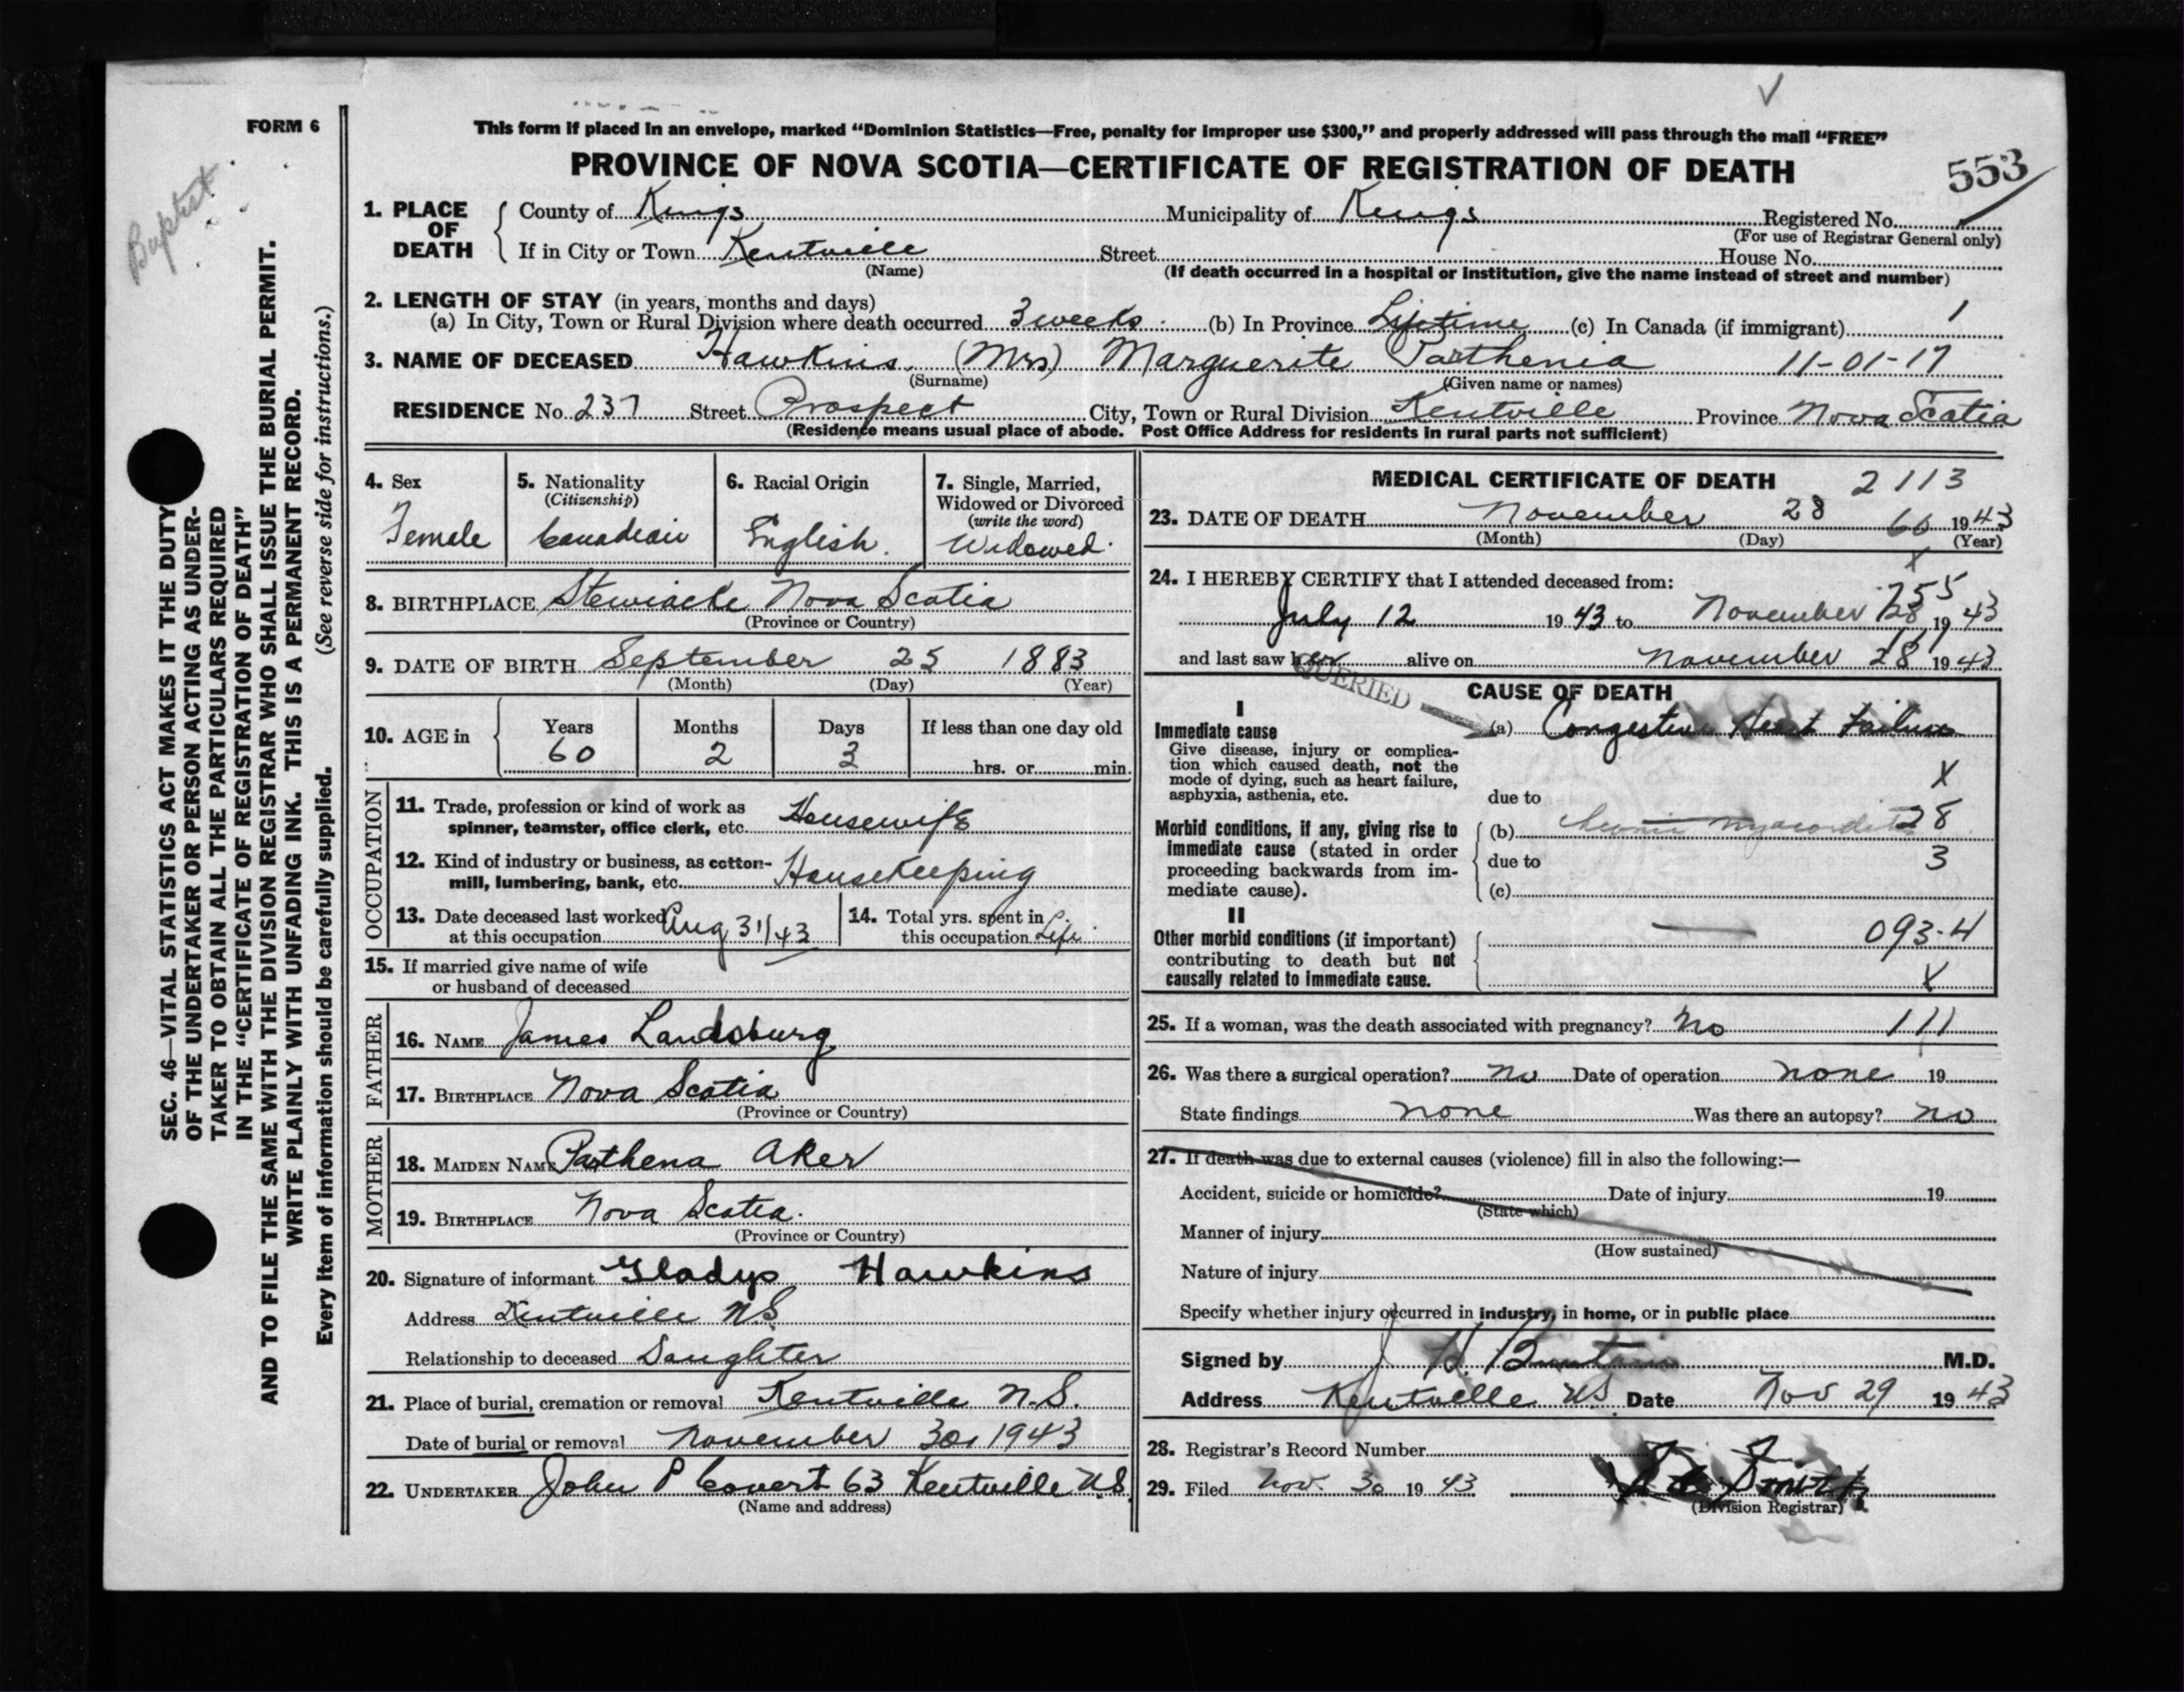 FORM 6
Baptist
This form if placed in an envelope, marked “Dominion Statistics—Free, penalty for improper use $300,” and properly addressed will pass through the mail “FREE”
PROVINCE OF NOVA SCOTIA—CERTIFICATE OF REGISTRATION OF DEATH
553
1. PLACE OF DEATH County of Kings Municipality of Kings Registered No.
(For use of Registrar General only)
If in City or Town Kentville Street House No.
(Name) (If death occurred in a hospital or institution, give the name instead of street and number)
2. LENGTH OF STAY (in years, months and days)
(a) In City, Town or Rural Division where death occurred 3 weeks (b) In Province Lifetime (c) In Canada (if immigrant) 1
3. NAME OF DECEASED Hawkins (Mrs) Marguerite Parthenia 11-01-17
(Surname) (Given name or names)
RESIDENCE No. 237 Street Prospect City, Town or Rural Division Kentville Province Nova Scotia
(Residence means usual place of abode. Post Office Address for residents in rural parts not sufficient)
SEC. 46—VITAL STATISTICS ACT MAKES IT THE DUTY
OF THE UNDERTAKER OR PERSON ACTING AS UNDER-
TAKER TO OBTAIN ALL THE PARTICULARS REQUIRED
IN THE “CERTIFICATE OF REGISTRATION OF DEATH”
AND TO FILE THE SAME WITH THE DIVISION REGISTRAR WHO SHALL ISSUE THE BURIAL PERMIT.
WRITE PLAINLY WITH UNFADING INK. THIS IS A PERMANENT RECORD.
Every item of information should be carefully supplied. (See reverse side for instructions.)
4. Sex
Female
5. Nationality
(Citizenship)
Canadian
6. Racial Origin
English.
7. Single, Married,
Widowed or Divorced
(write the word)
Widowed.
8. BIRTHPLACE Stewiacke Nova Scotia
(Province or Country)
9. DATE OF BIRTH September 25 1883
(Month) (Day) (Year)
10. AGE in Years Months Days If less than one day old
60 2 3 hrs. or min.
OCCUPATION
11. Trade, profession or kind of work as
spinner, teamster, office clerk, etc. Housewife
12. Kind of industry or business, as cotton-
mill, lumbering, bank, etc. Housekeeping
13. Date deceased last worked
at this occupation Aug 31/43
14. Total yrs. spent in
this occupation Life
15. If married give name of wife
or husband of deceased
FATHER
16. NAME James Landsburg
17. BIRTHPLACE Nova Scotia
(Province or Country)
MOTHER
18. MAIDEN NAME Parthena Aker
19. BIRTHPLACE Nova Scotia.
(Province or Country)
20. Signature of informant Gladys Hawkins
Address Kentville N.S.
Relationship to deceased Daughter
21. Place of burial, cremation or removal Kentville N.S.
Date of burial or removal November 30, 1943
22. UNDERTAKER John P Covert 63 Kentville N.S.
(Name and address)
MEDICAL CERTIFICATE OF DEATH 2113
23. DATE OF DEATH November 28 60 1943
(Month) (Day) (Year)
X
24. I HEREBY CERTIFY that I attended deceased from: 755
July 12 1943 to November 28 1943
and last saw her alive on November 28 1943
QUERIED
CAUSE OF DEATH
I
Immediate cause
Give disease, injury or complica-
tion which caused death, not the
mode of dying, such as heart failure,
asphyxia, asthenia, etc.
(a) Congestive Heart Failure
X
due to
Morbid conditions, if any, giving rise to
immediate cause (stated in order
proceeding backwards from im-
mediate cause).
(b) Chronic myocarditis 28
due to 3
(c)
II
Other morbid conditions (if important)
contributing to death but not
causally related to immediate cause.
093-4
X
25. If a woman, was the death associated with pregnancy? No 111
26. Was there a surgical operation? No Date of operation none 19
State findings none Was there an autopsy? no
27. If death was due to external causes (violence) fill in also the following:—
Accident, suicide or homicide? Date of injury 19
(State which)
Manner of injury
(How sustained)
Nature of injury
Specify whether injury occurred in industry, in home, or in public place
Signed by J H Buntain M.D.
Address Kentville NS Date Nov 29 1943
28. Registrar's Record Number
29. Filed Nov. 30 1943 Smith
(Division Registrar)